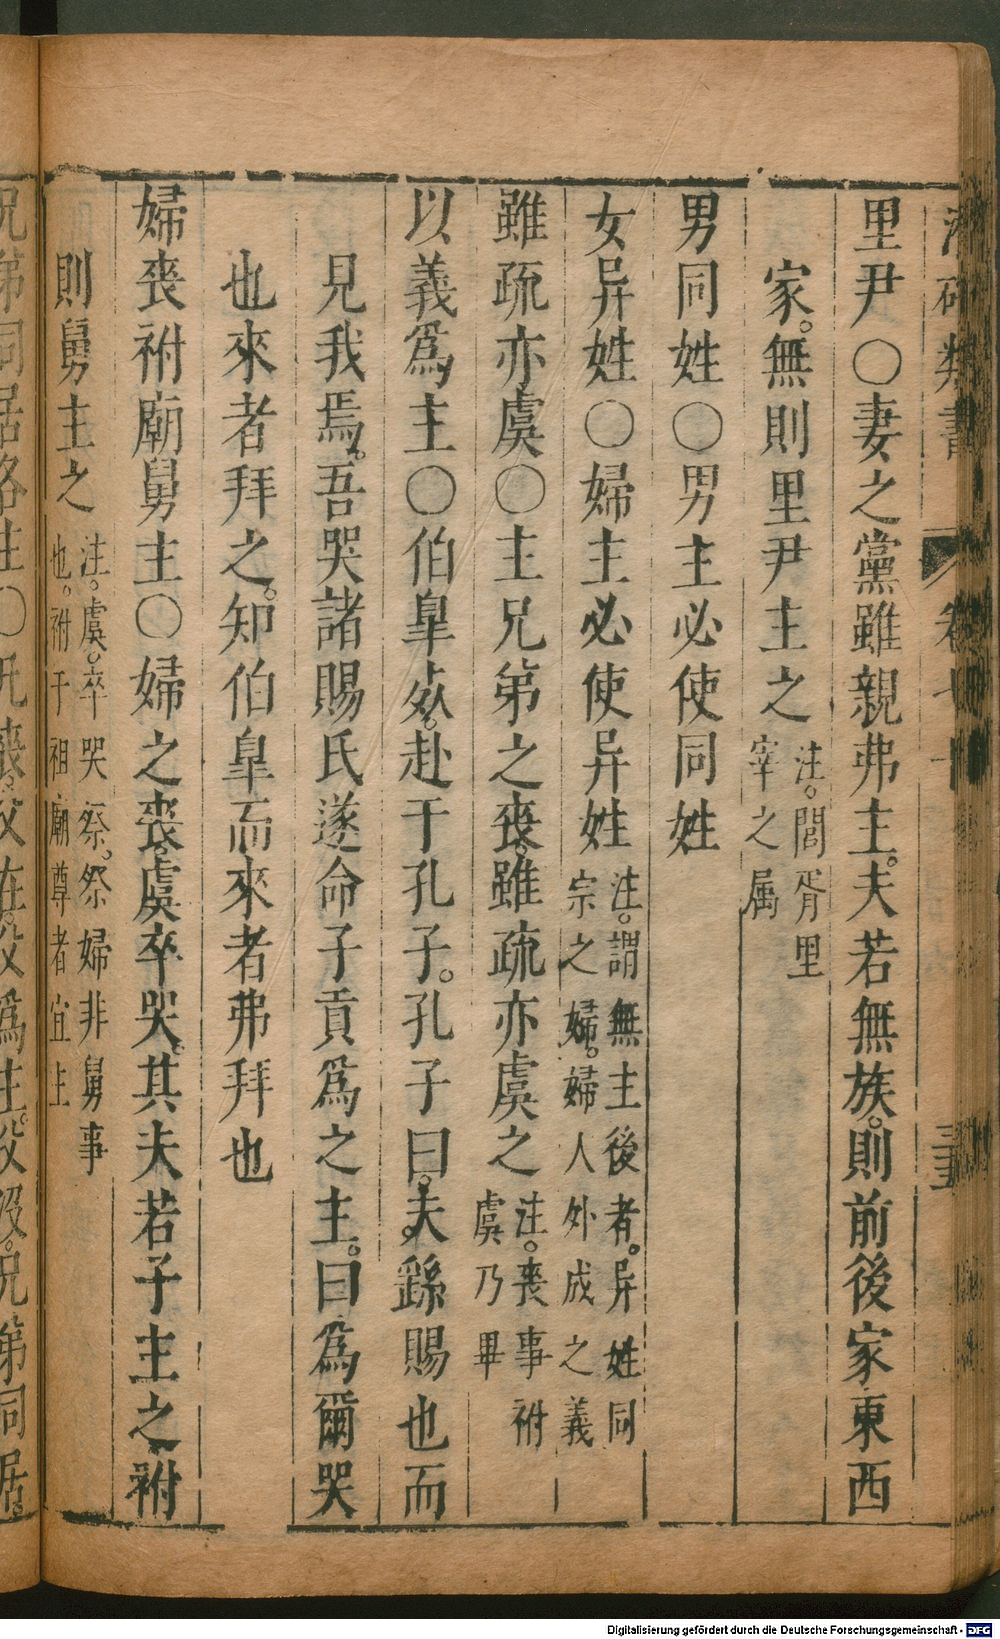 里尹○妻之黨雖親弗主。夫若無族。則前後家東西
家。無則里尹主之注。閭胥里宰之属
男同姓○男主必使同姓
女异姓○婦主必使异姓注。謂無主後者。异姓同宗之婦。婦人外成之義
雖疏亦虞○主兄弟之喪。雖疏亦虞之注。喪事祔虞乃畢
以義爲主○伯臯𣦸。赴于孔子。孔子曰。夫繇賜也而
見我焉。吾哭諸賜氏遂命子貢爲之主。曰爲爾哭
也來者拜之。知伯臯而來者弗拜也
婦喪祔廟舅主○婦之喪。虞卒哭。其夫若子主之祔
則舅主之注。虞。卒哭祭。祭婦非舅事也。祔于祖廟尊者宜主
Digitalisierung gefördert durch die Deutsche Forschungsgemeinschaft - DFG